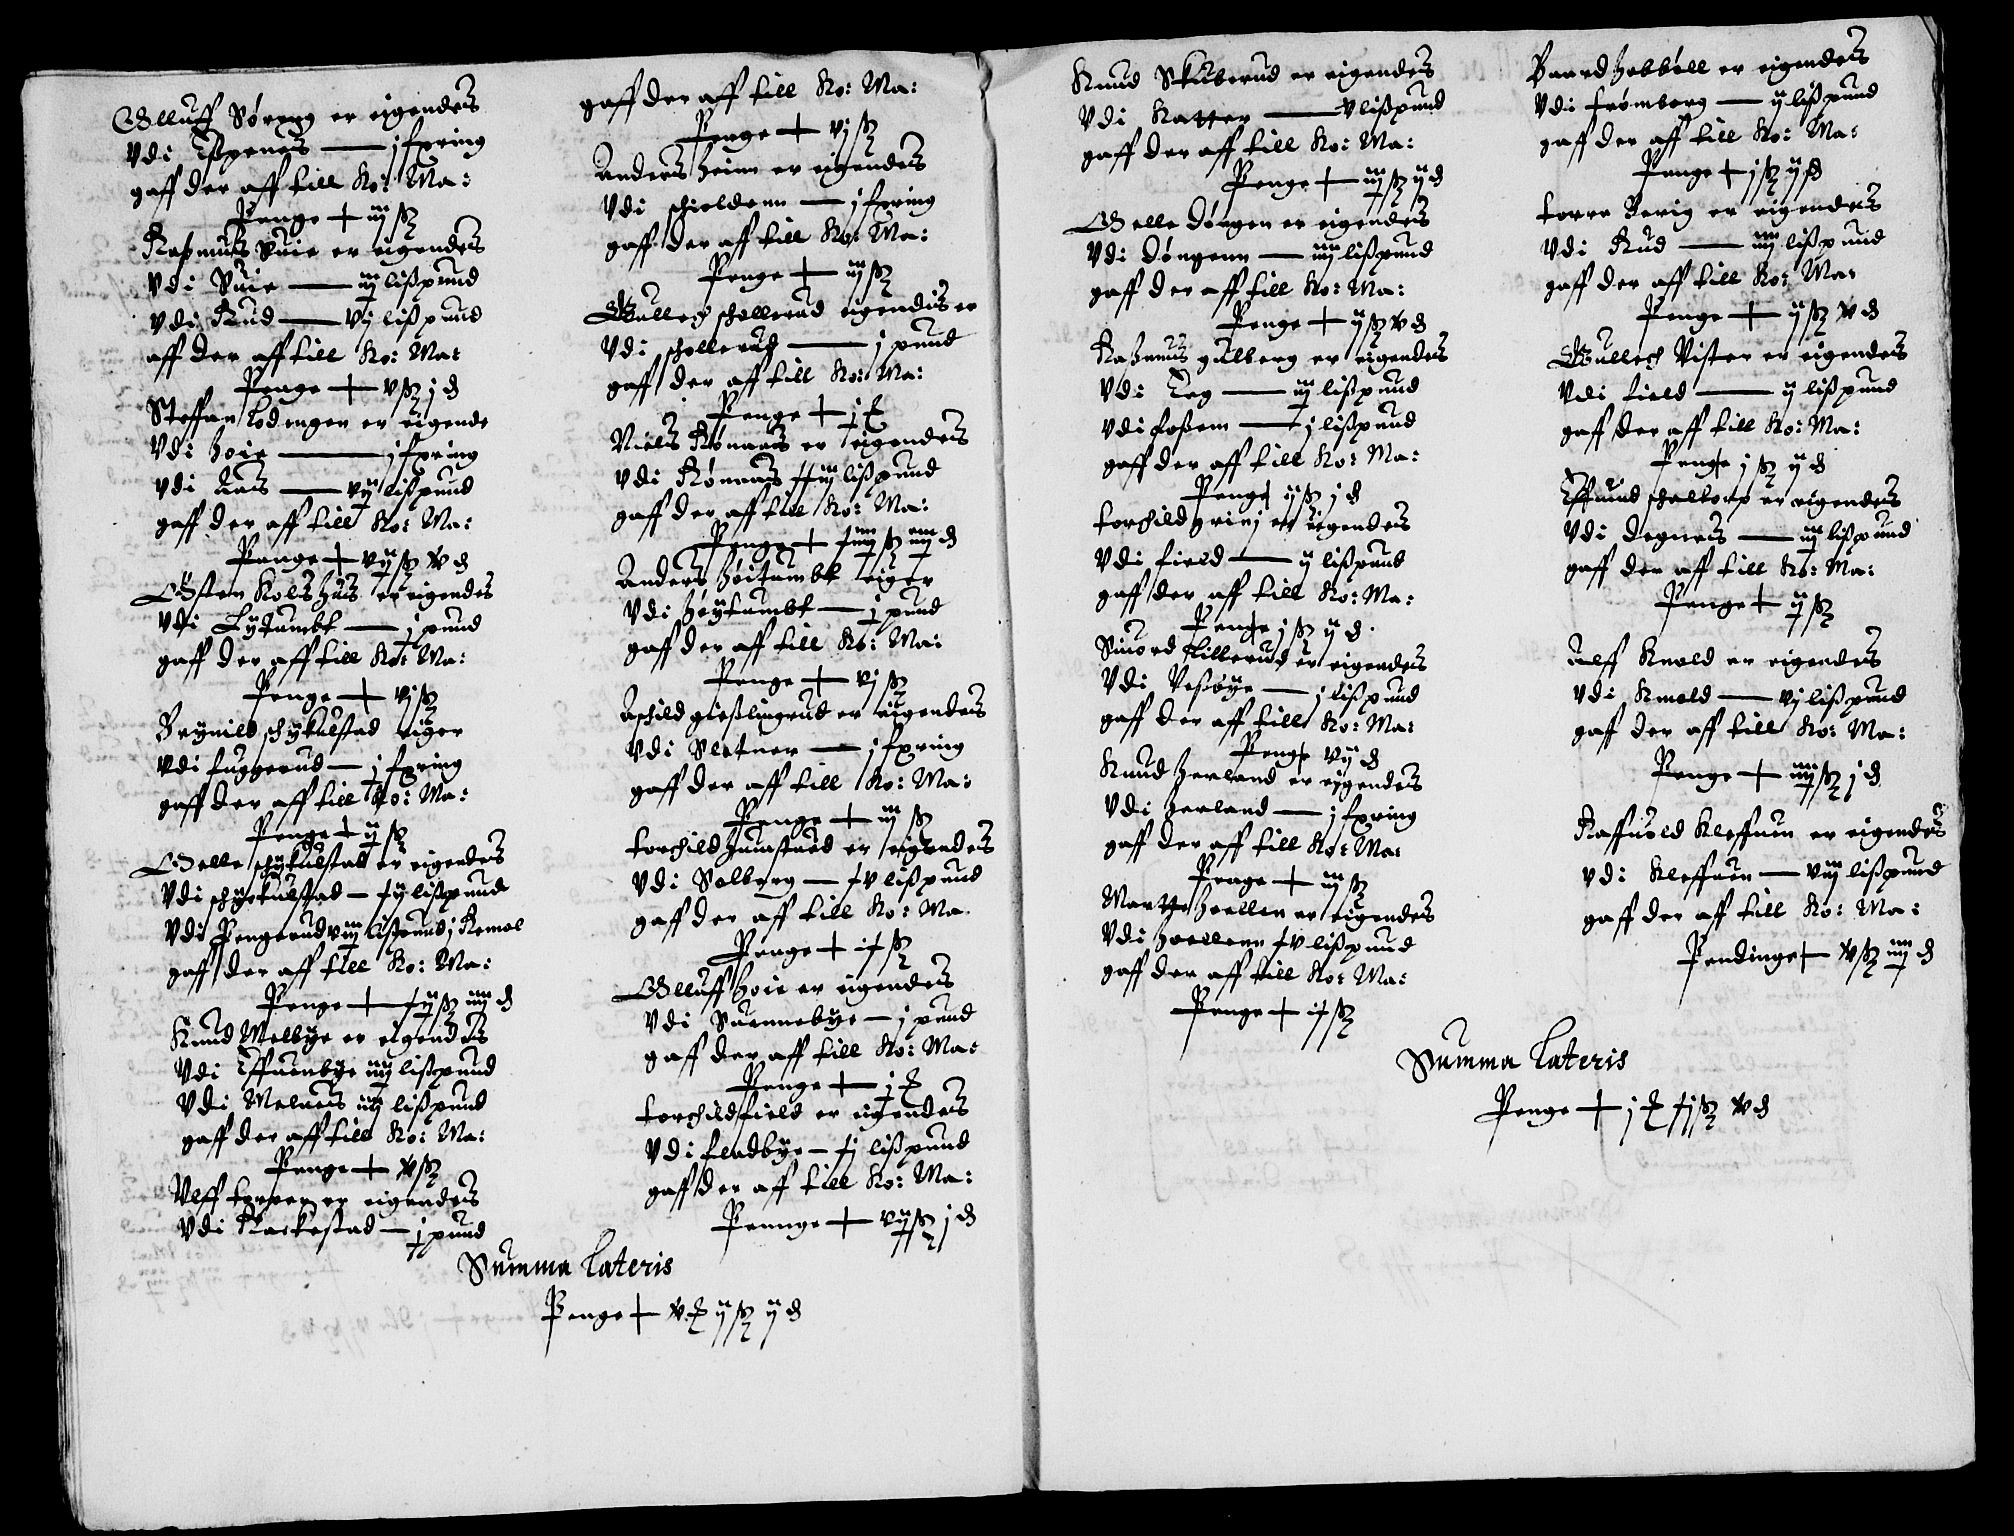 Olluff Sørrng er eigendes
Vdi Espenes — j fxring
gaff der aff till Ko: Ma:
Penge + iiij ß
Rasmuus Suie er eigendes
Vdi Suie — iij lißpund
Vdi Rud — vij lißpund
aff der aff till Ko: Ma:
Penge + v ß j d
Steffan Lodengen er eigende
Vdi Hoie — j fxring
Vdi Aas — vij lißpund
gaff der aff till Ko: Ma:
Penge + vij ß x d
Østen Kolshus er eigendes
Vdi Lytumbt — j pund
gaff der aff till Ko: Ma:
Penge + vj ß
Brynild schykulstad eiger
Vdi fuggerud — j fxring
gaff der aff till Ko: Ma:
Penge + iij ß
Oelle schykulstad er eigendes
Vdi schykulstad — xij lißpund
Vdi Pengerud viij lißpund j Remol
gaff der aff till Ko: Ma:
Penge + xij ß iiij d
Knud Melbye er eigendes
Vdi Effuenbye iiij lißpund
Vdi Melnes iij lißpund
gaff der aff till Ko: Ma:
Penge + x ß
Ulff torper er eigendes
Vdi Rackestad — j pund
gaff der aff till Ko: Ma:
Penge + vj ß
Anders Heim er eigendes
Vdi schieldenn — j fxring
gaff der aff till Ko: Ma:
Penge + iij ß
Gullech schollerud eigendis er
Vdi schollerud — j pund
gaff der aff till Ko: Ma:
Penge + j
Niels Rønnaas er eigendes
Vdi Rønnaas xiij lißpund
gaff der aff till Ko: Ma:
Penge + xiiij ß iiij d
Anders Høitumbt eiger
Vdi Høytumbt — j pund
gaff der aff till Ko: Ma:
Penge + vj ß
Aschild gießlingrud er eigendes
Vdi Sletner — j fxring
gaff der aff till Ko: Ma:
Penge + iij ß
torchild Humstued er eigendes
Vdi Solberg — xv lißpund
gaff der aff till Ko: Ma.
Penge + ix ß
Olluff Hoie er eigendes
Vdi Suennebye — j pund
gaff der aff till Ko: Ma:
Penge + j
torchild field er eigendes
Vdi fladbye — xj lißpund
gaff der aff till Ko: Ma:
Pennge + vij ß j d
Summa Lateris
Penge + x ij ß ij d
Knud Skuberud er eigendes
Vdi Katter — v lißpund
gaff der aff till Ko: Ma:
Penge + iij ß ij d
Oelle Døngen er eigendes
Vdi Døngenn — iiij lißpund
gaff der aff till Ko: Ma:
Penge + ij ß x d
Rasmus gulberg er eigendes
Vdi Teg — iij lißpund
Vdi foßem — j lißpund
gaff der aff till Ko: Ma:
Penge ij ß j d
torchild grinj er eigendes
Vdi field — ij lißpund
gaff der aff till Ko: Ma:
Penge j ß ij d.
Siuord Lillerud er eigendes
Vdi Veßøye — j lißpund
gaff der aff till Ko: Ma:
Penge vij d
Knud Herland er eygendes
Vdi Herland — j fxring
gaff der aff till Ko: Ma:
Penge + iij ß
Martte Hoellen er eigendes
Vdi Hoellenn xv lißpund
gaff der aff till Ko: Ma:
Penge + ix ß
Baard Hobbøll er eigendes
Vdi frømberg — ij lißpund
gaff der aff till Ko: Ma:
Penge + j ß ij d
torre Berig er eigendes
Vdi Rud — iiij lißpund
gaff der aff till Ko: Ma:
Penge + ij ß x d
Gullech Vister er eigendes
Vdi field — ij lißpund
gaff der aff till Ko: Ma:
Penge j ß ij d
Effuind schollorp er eigendes
Vdi Degnes — iij lißpund
gaff der aff till Ko: Ma:
Penge + ij ß
Alff Knold er eigendes
Vdi Knold — vj lißpund
gaff der aff till Ko: Ma:
Penge + iiij ß j d
Raffuold Kleffuen er eigendes
vdi Kleffuen — viij lißpund
gaff der aff till Ko: Ma:
Pendinge + x ß iiij d
Summa Lateris
Penge + j xj ß x d